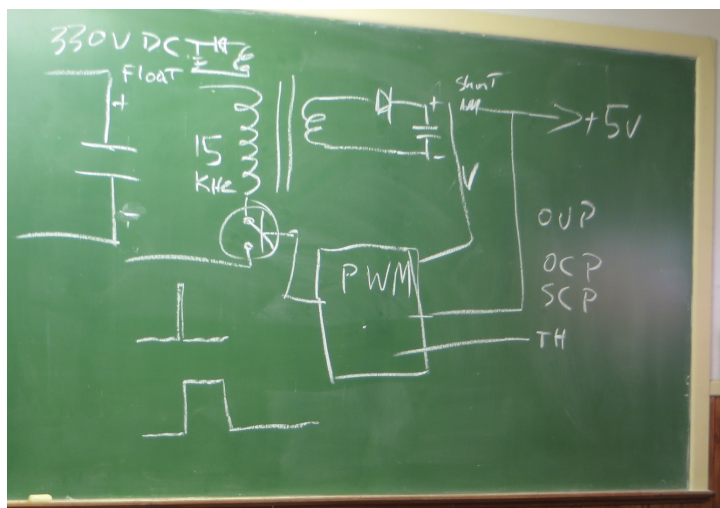 330V DC
FLOAT
+
-
15
KHz
+
-
Shunt
+5V
V
PWM
OVP
OCP
SCP
TH